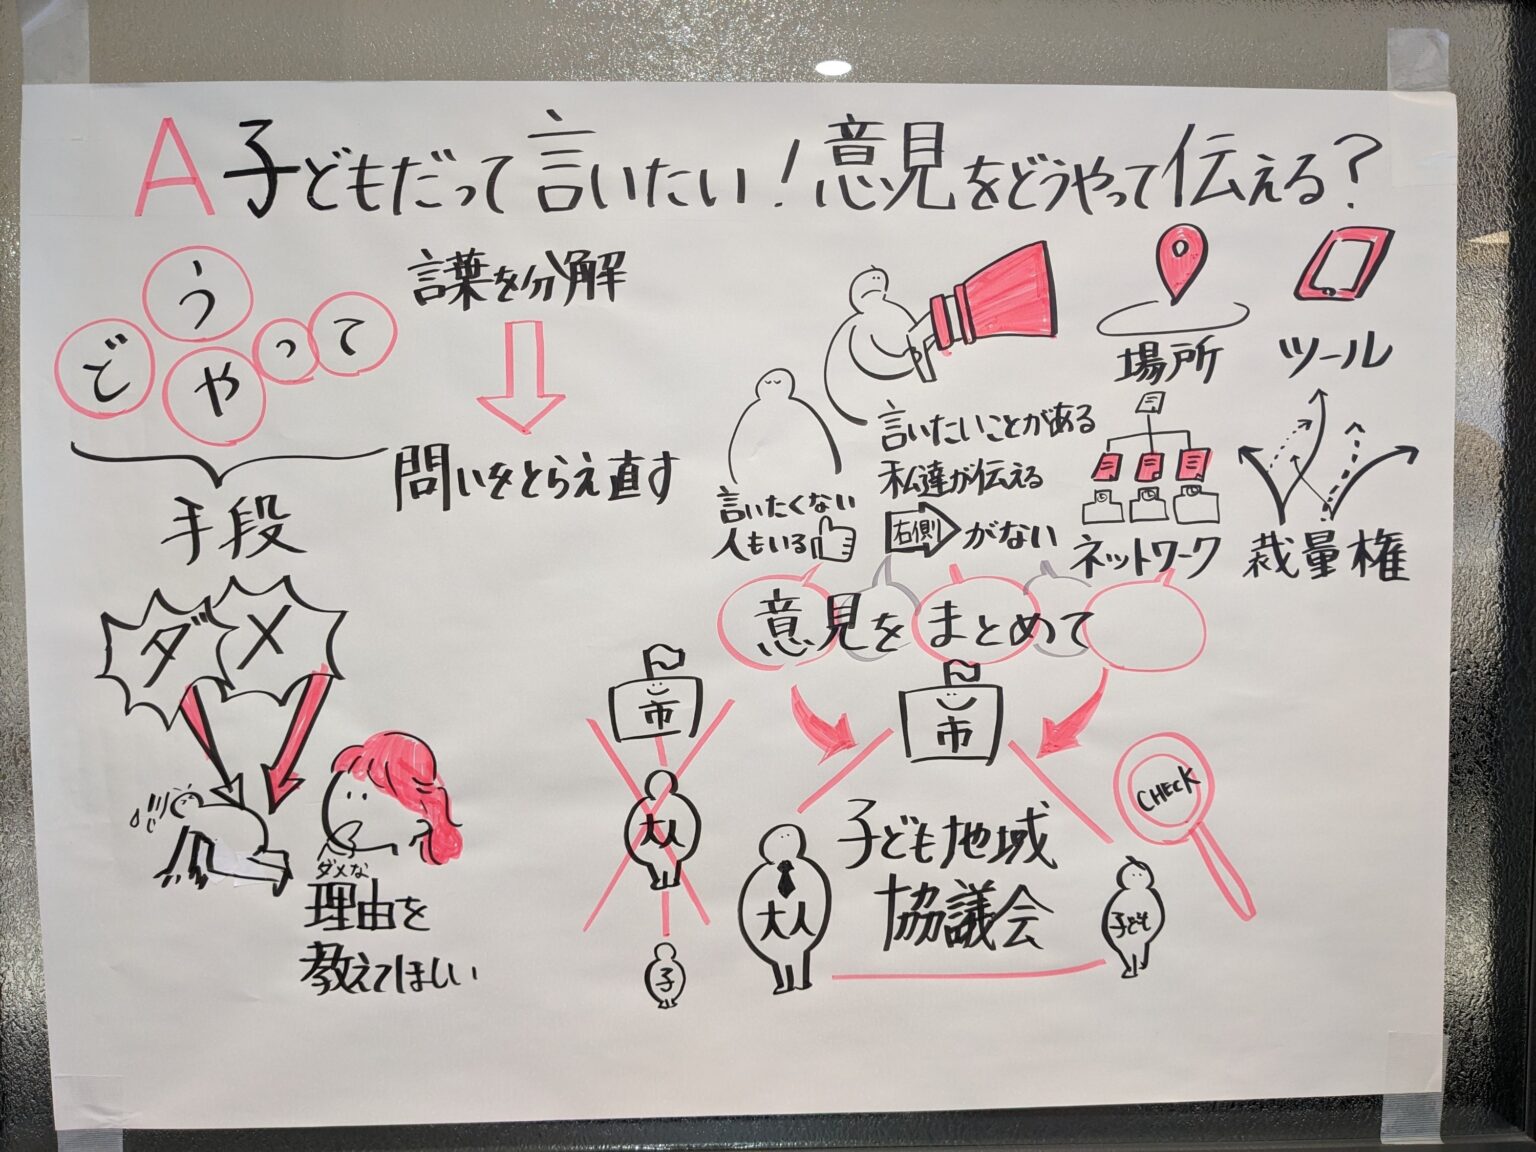 A 子どもだって言いたい！意見をどうやって伝える？
どうやって
手段
言葉を分解
問いをとらえ直す
ダメ
ダメな
理由を
教えてほしい
言いたくない
人もいる
言いたいことがある
私達が伝える
右側がない
場所
ツール
ネットワーク
裁量権
意見をまとめて
市
大人
子
市
大人
子ども地域
協議会
子ども
CHECK